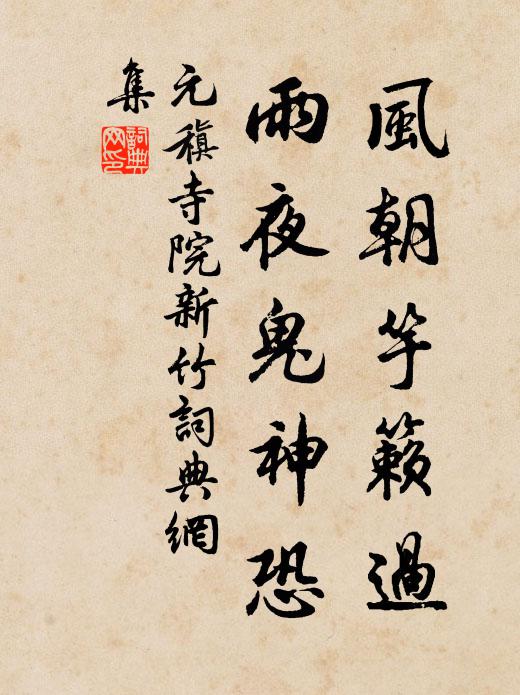 風朝竽籟過
雨夜鬼神恐
元稹寺院新竹詞典網
集
詞典
网印